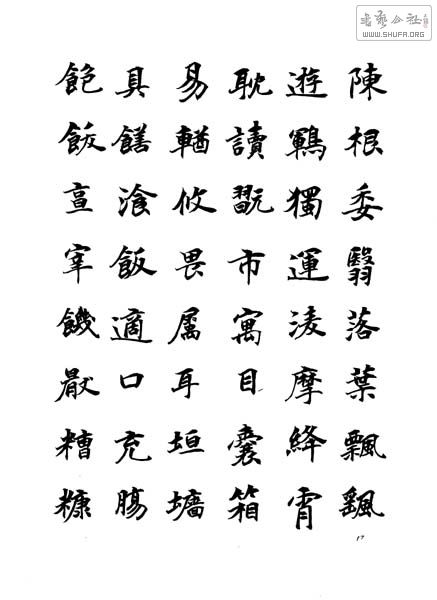 陳根委翳落葉飄颻
遊鵾獨運淩摩絳霄
耽讀翫市寓目囊箱
易輶攸畏属耳垣墻
具饍湌飯適口充腸
飽飫亯宰饑厭糟糠
17
书艺公社
WWW.SHUFA.ORG